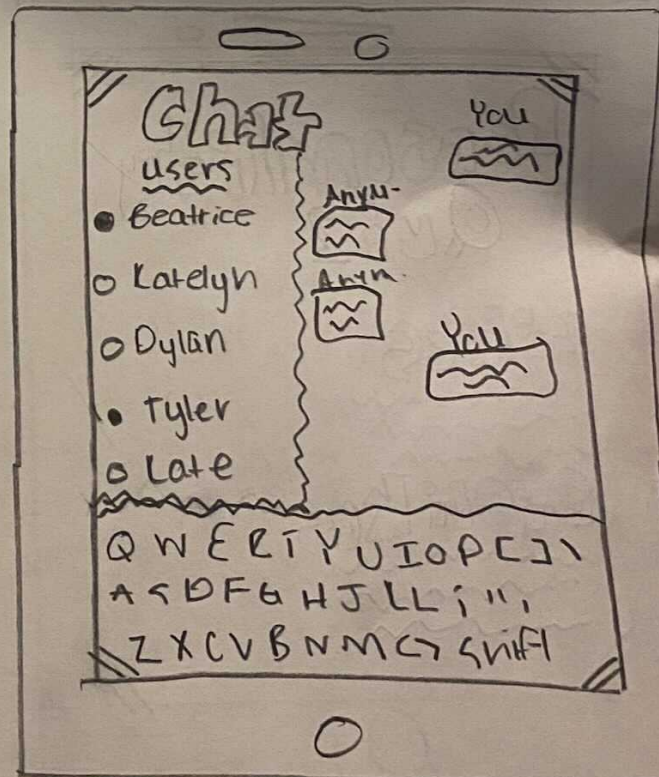 Chat
users
Beatrice
Katelyn
Dylan
Tyler
Kate
You
Anym.
Anym.
You
Q W E R T Y U I O P [ ] \
A S D F G H J K L ; " ,
Z X C V B N M < > shift